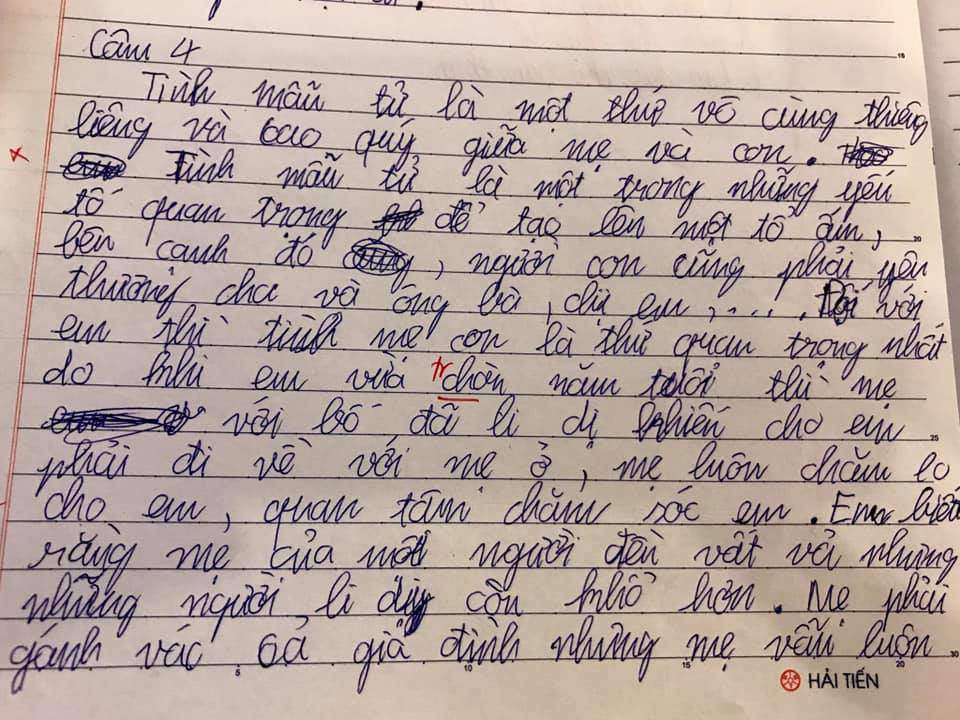 Câu 4
Tình mẫu tử là một thứ vô cùng thiêng
liêng và bao quý giữa mẹ và con.
Tình mẫu tử là một trong những yếu
tố quan trong để tạo lên một tổ ấm,
bên cạnh đó, người con cũng phải yên
thương cha và ông bà, chị em, .... Đối với
em thì tình mẹ con là thứ quan trọng nhất
do khi em vừa chòn năm tuổi thì mẹ
tr
với bố đã li dị khiến cho em
phải đi về với mẹ ở, mẹ luôn chăm lo
cho em, quan tâm chăm sóc em. Em biết
rằng mẹ của một người đều vất vả nhưng
những người li dị còn khổ hơn. Mẹ phải
gánh vác cả gia đình nhưng mẹ vẫn luôn
HẢI TIẾN
15
20
25
5
10
15
20
30